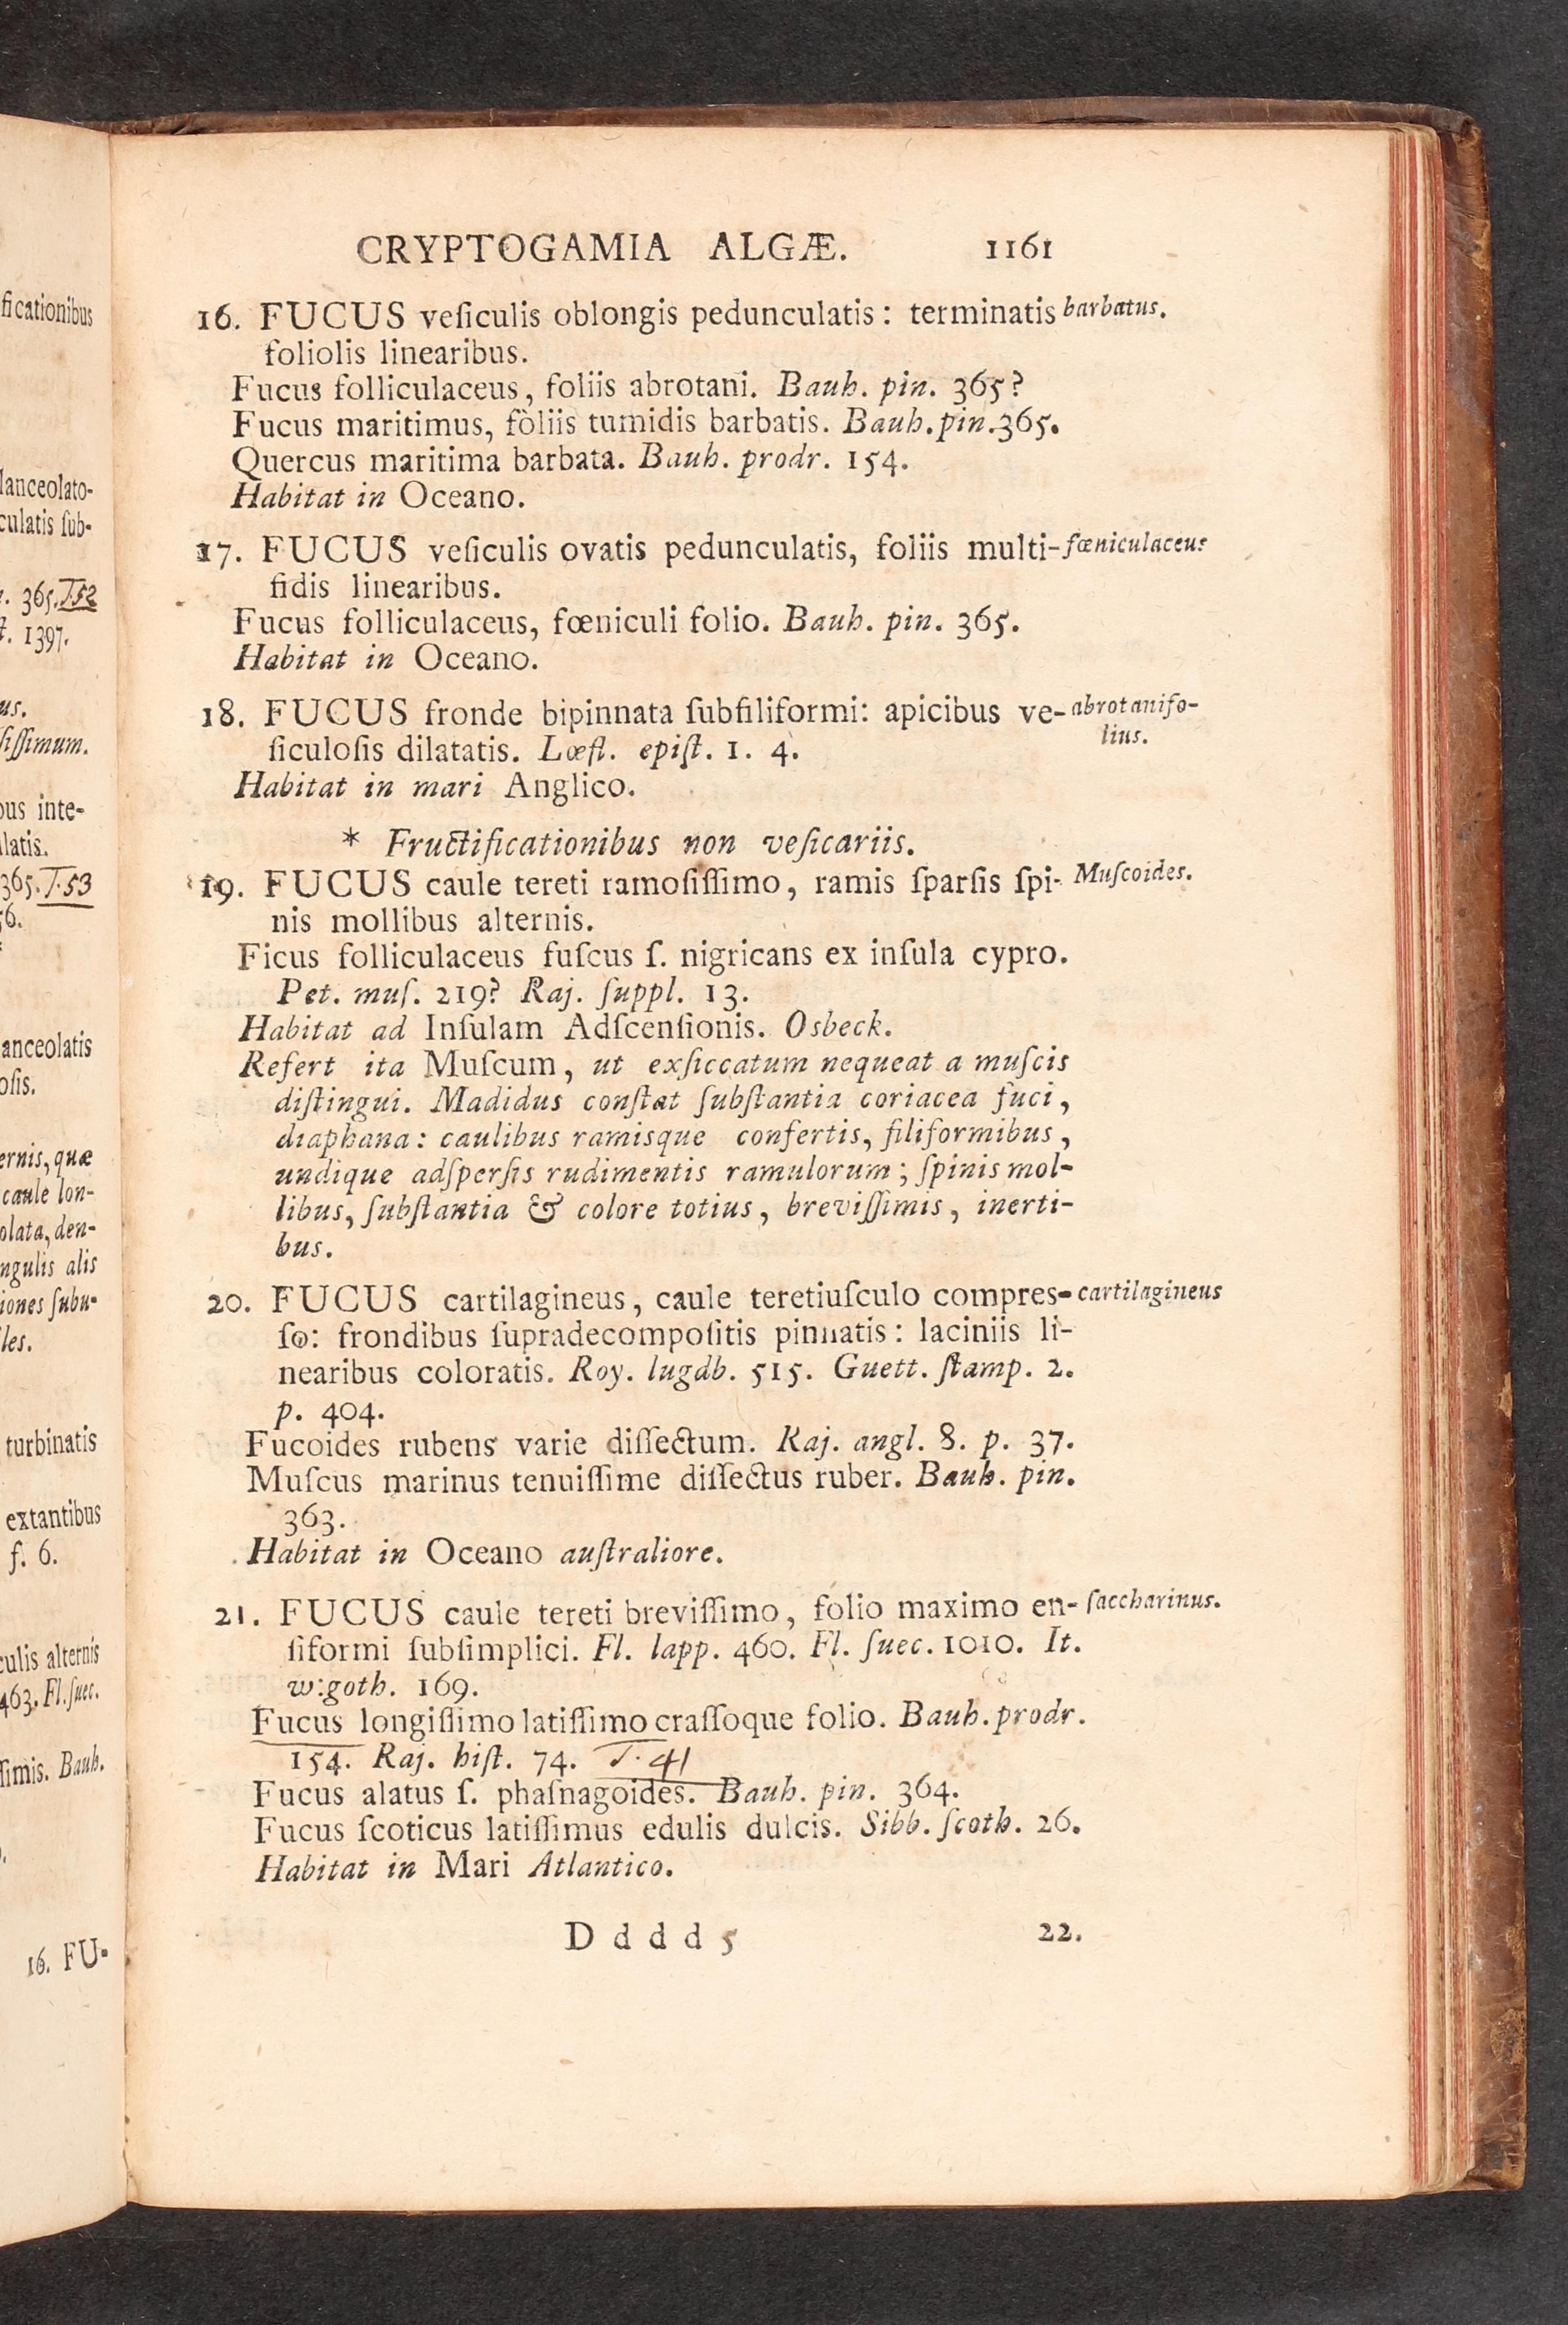 ficationibus
lanceolato-
culatis ſub-
365. T.52
1397.
us.
ſiſſimum.
bus inte-
latis.
365. T.53
56.
anceolatis
oſis.
ernis, quæ
caule lon-
olata, den-
ngulis alis
iones ſubu-
les.
turbinatis
extantibus
f. 6.
culis alternis
463. Fl. ſuec.
ſimis. Bauh.
16. FU-
CRYPTOGAMIA ALGÆ. 1161
16. FUCUS veſiculis oblongis pedunculatis: terminatis barbatus.
foliolis linearibus.
Fucus folliculaceus, foliis abrotani. Bauh. pin. 365?
Fucus maritimus, foliis tumidis barbatis. Bauh. pin. 365.
Quercus maritima barbata. Bauh. prodr. 154.
Habitat in Oceano.
17. FUCUS veſiculis ovatis pedunculatis, foliis multi- fœniculaceus
fidis linearibus.
Fucus folliculaceus, fœniculi folio. Bauh. pin. 365.
Habitat in Oceano.
18. FUCUS fronde bipinnata ſubfiliformi: apicibus ve- abrotanifo-
lius.
ſiculoſis dilatatis. Lœfl. epiſt. 1. 4.
Habitat in mari Anglico.
* Fructificationibus non veſicariis.
19. FUCUS caule tereti ramoſiſſimo, ramis ſparſis ſpi- Muſcoides.
nis mollibus alternis.
Ficus folliculaceus fuſcus ſ. nigricans ex inſula cypro.
Pet. muſ. 219? Raj. ſuppl. 13.
Habitat ad Inſulam Adſcenſionis. Osbeck.
Refert ita Muſcum, ut exſiccatum nequeat a muſcis
diſtingui. Madidus conſtat ſubſtantia coriacea fuci,
diaphana: caulibus ramisque confertis, filiformibus,
undique adſperſis rudimentis ramulorum; ſpinis mol-
libus, ſubſtantia & colore totius, breviſſimis, inerti-
bus.
20. FUCUS cartilagineus, caule teretiuſculo compres- cartilagineus
ſo: frondibus ſupradecompoſitis pinnatis: laciniis li-
nearibus coloratis. Roy. lugdb. 515. Guett. ſtamp. 2.
p. 404.
Fucoides rubens varie diſſectum. Raj. angl. 8. p. 37.
Muſcus marinus tenuiſſime diſſectus ruber. Bauh. pin.
363.
Habitat in Oceano auſtraliore.
21. FUCUS caule tereti breviſſimo, folio maximo en- ſaccharinus.
ſiformi ſubſimplici. Fl. lapp. 460. Fl. ſuec. 1010. It.
w:goth. 169.
Fucus longiſſimo latiſſimo craſſoque folio. Bauh. prodr.
154. Raj. hiſt. 74. T. 41
Fucus alatus ſ. phaſnagoides. Bauh. pin. 364.
Fucus ſcoticus latiſſimus edulis dulcis. Sibb. ſcoth. 26.
Habitat in Mari Atlantico.
D d d d 5 22.